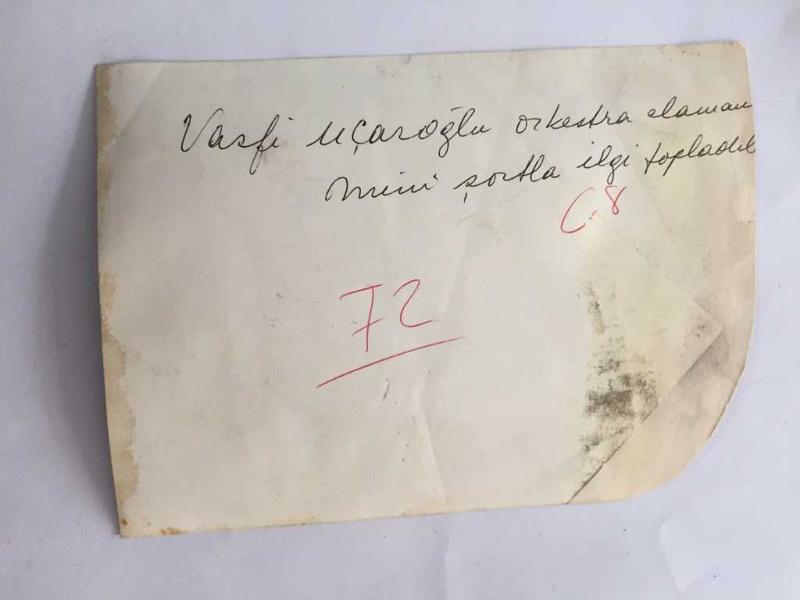 Vasfi Uçaroğlu orkestra elaman
mini şortla ilgi topladıl
C.8
72